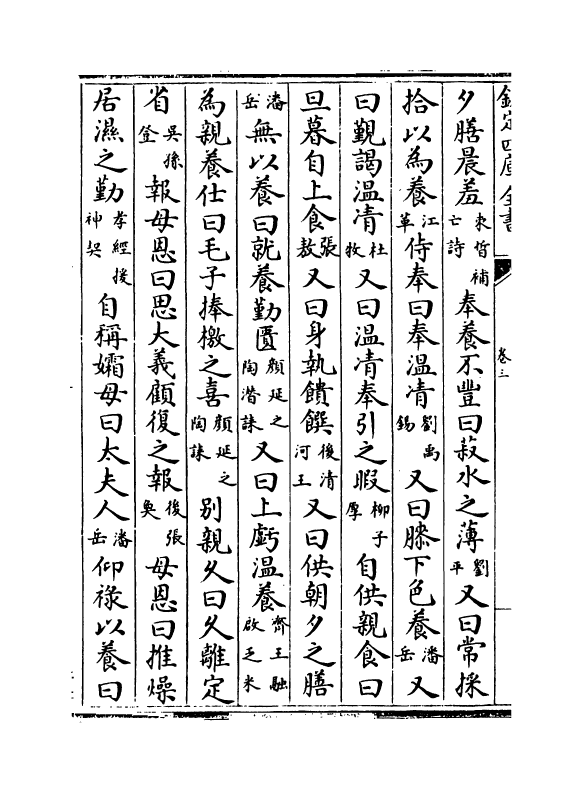 欽定四庫全書
卷三
夕膳晨羞束皙補亡詩奉養不豐曰菽水之薄劉平又曰常採
拾以為養江革侍奉曰奉溫凊劉禹錫又曰膝下色養潘岳又
曰觀謁溫凊杜牧又曰溫凊奉引之暇柳子厚自供親食曰
旦暮自上食張敖又曰身執饋饌後清河王又曰供朝夕之膳
潘岳無以養曰就養勤匱顏延之陶潛誄又曰上虧溫養齊王融啟乏米
為親養仕曰毛子捧檄之喜顏延之陶誄別親久曰久離定
省吳孫登報母恩曰思大義顧復之報後張奐母恩曰推燥
居濕之勤孝經援神契自稱孀母曰太夫人潘岳仰祿以養曰